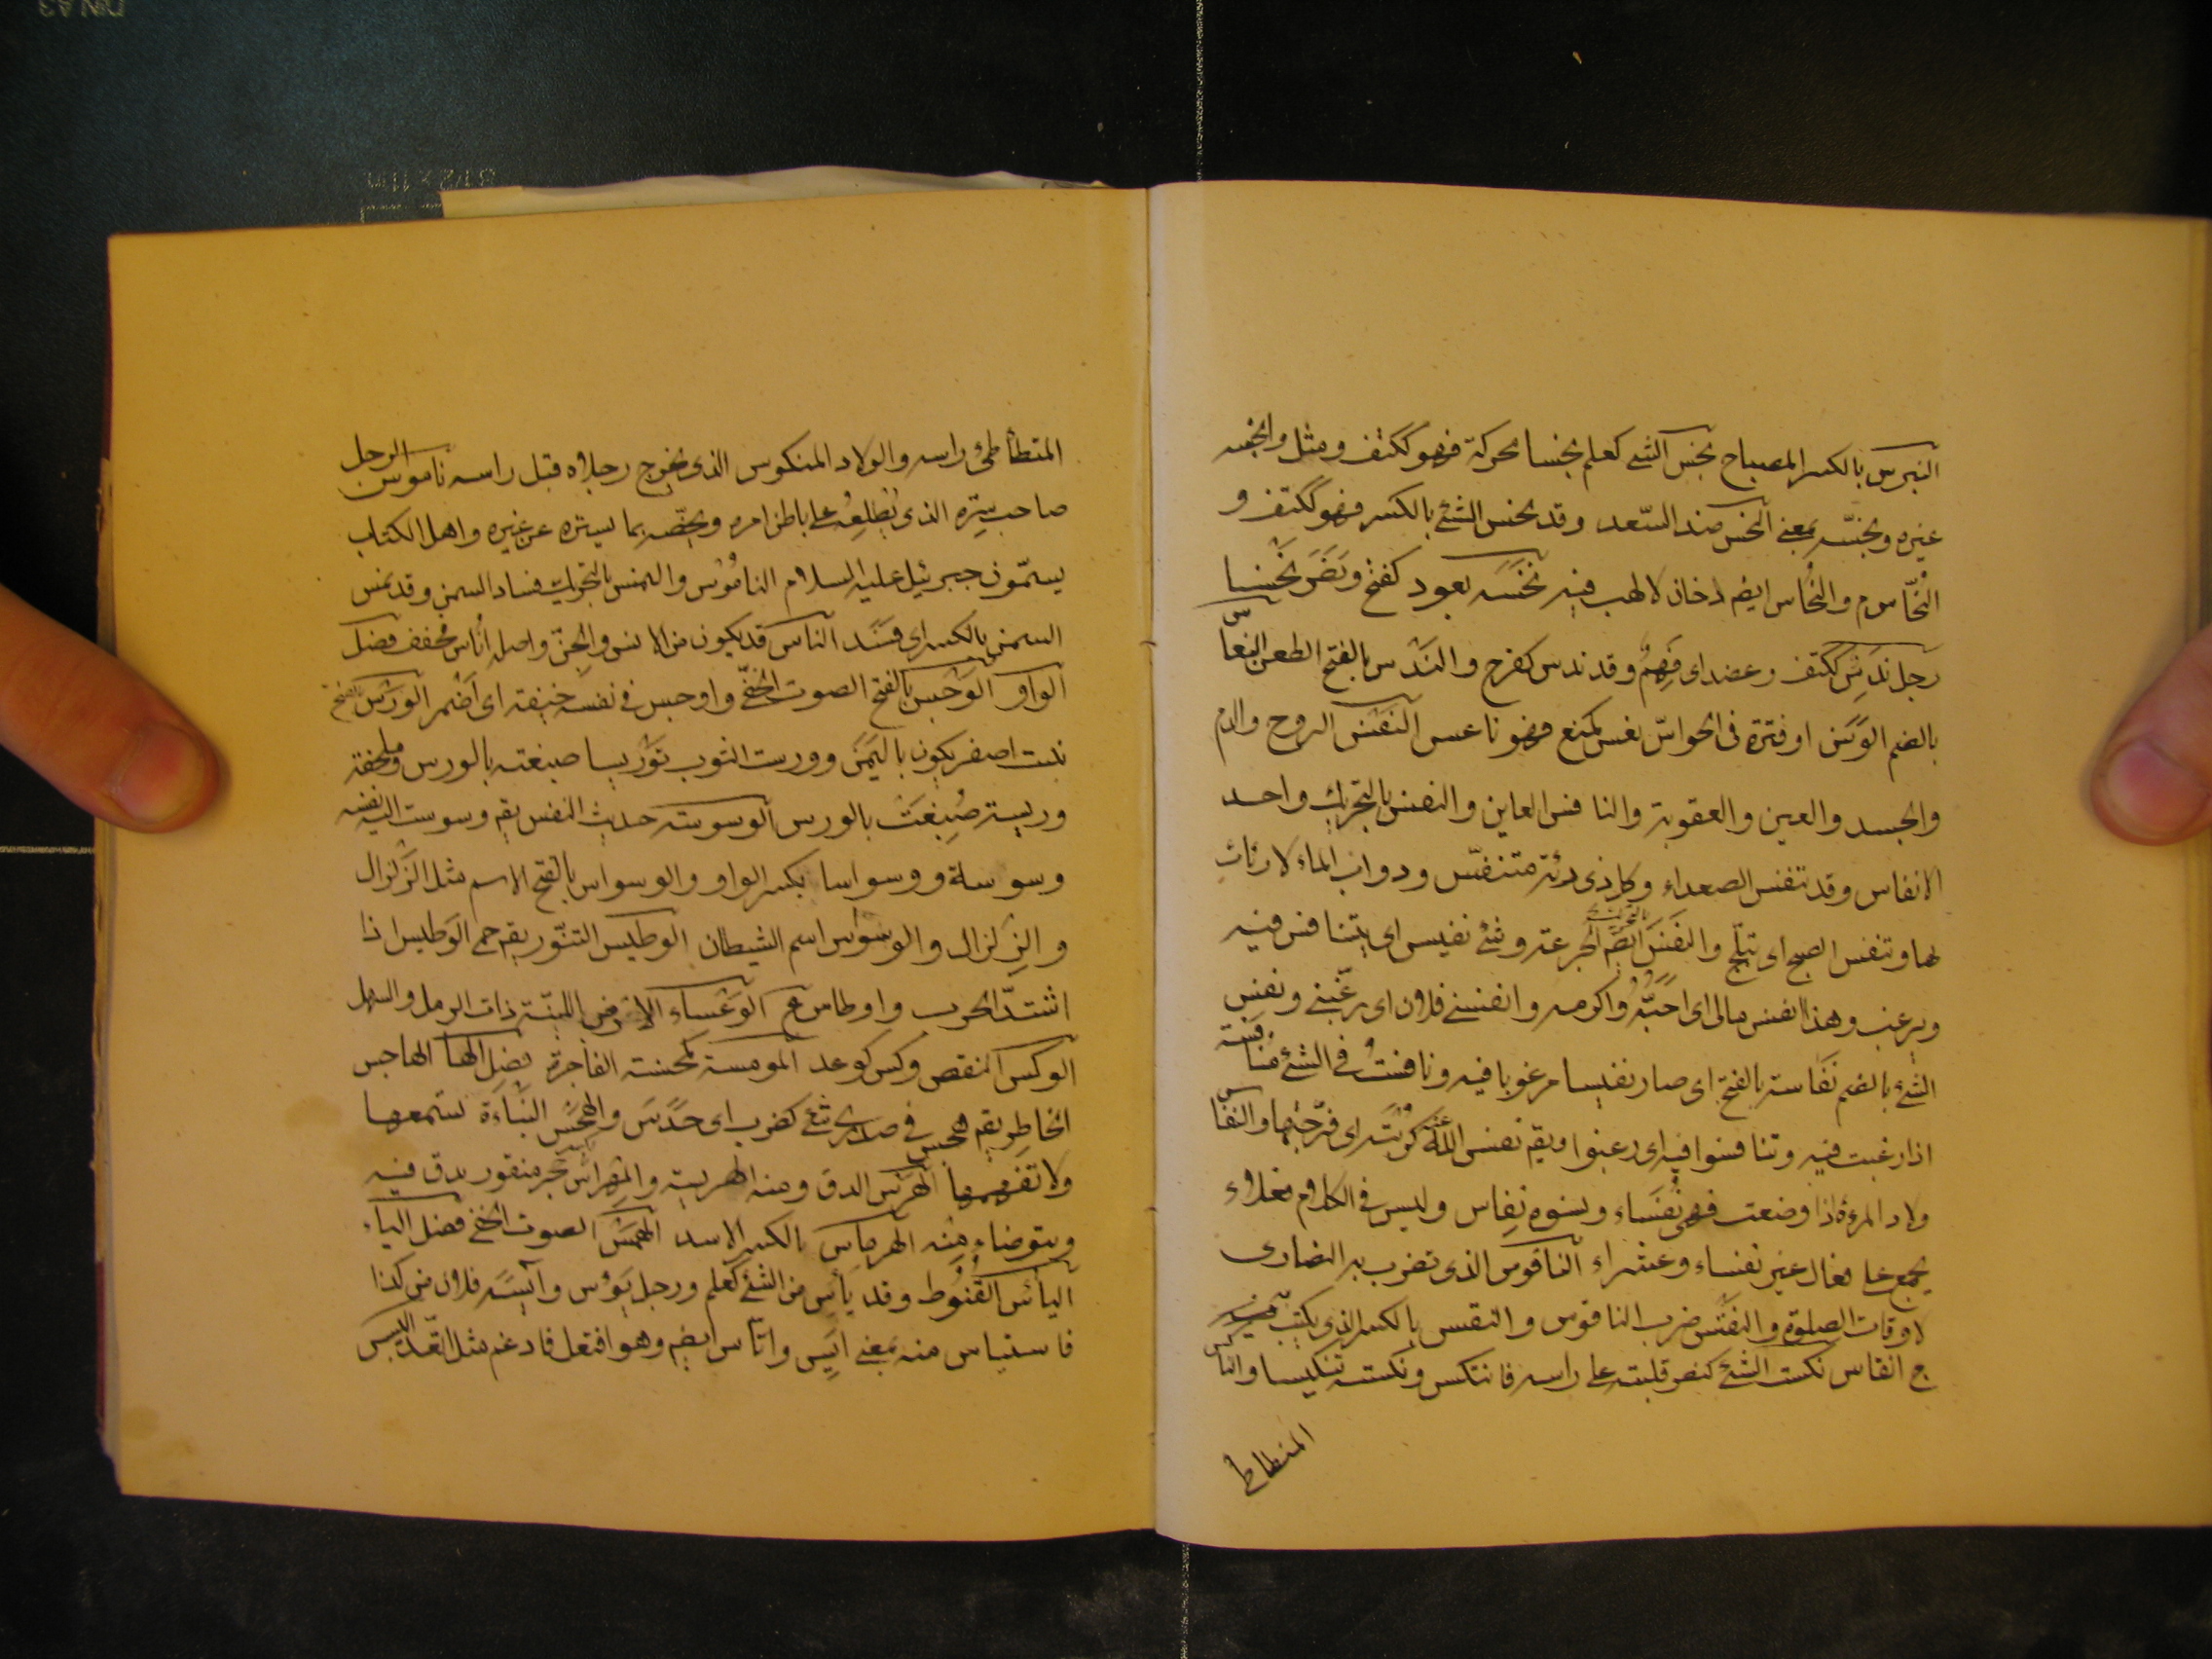 النبرس بالكسر المصباح نجس الشئ كعلم نجسا محركة فهو ككتف ومثل وانجسه
غيره ونجّسه بمعنى النحس ضد السّعد وقد نحس الشئ بالكسر فهو ككتف و
النُحّاس م والنُحُاس ايضم دخان لا لهب فيه نخسَه بعود كفتح ونَصَرَ نَخْسا
رجل نَدَسٌ ككتف وعضد اى فَهِمٌ وقد ندس كفرح والنَدْس بالفتح الطعن النعاس
بالضم الوَسَن او فترة فى الحواسّ نعس كمنع فهو ناعس النَفْس الروح والدم
والجسد والعين والعقوبة والنافس العاين والنفس بالتحريك واحد
الانفاس وقد تنفس الصعداء وكل ذى رئة متنفّس ودواب الماء لا رئات
لها وتنفس الصبح اى تبلّج والنَفَس بالتحريك ايضم الجرعة وشئ نفيس اى يتنافس فيه
ويرغب وهذا انفس مالى اى احَبُّهُ واكرمه وانفسنى فلان اى رغّبنى ونفس
الشئ بالضم نَفَاسة بالفتح اى صار نفيسا مرغوبا فيه ونافستُ فى الشئ مُنافسة
اذا رغبت فيه وتنافسوا فيه اى رغبوا ويقم نفس اللهُ عنه كربتَه اى فرّجها والنفاس
ولاد المرءة اذا وضعت فهى نُفَسَاء ونسوة نِفِاس وليس فى الكلام فعلاء
يجمع على فعال غير نفساء وعشراء الناقوس الذى تضرب به النصارى
لاوقات الصلوة والنَقْس ضرب الناقوس والنقس بالكسر الذى يكتب به
ج انقاس نكست الشئ كنصر قلبته على راسه فانتكس ونكسته تنكيسا والناكس
المتطاطئ
المتطأطئ راسه والولاد المنكوس الذى تخرج رجلاه قبل راسه ناموس الرجل
صاحب سِرّه الذى يُطْلِعُه على باطن امره ويخصّه بما يستره عن غيره واهل الكتاب
يسمّون جبرئيل عليه السلام النامُوس والنمس بالتحريك فساد السمن وقد نمس
السمن بالكسر اى فَسَد الناس قد يكون من الانس والجنّ واصله اُناس مخفف فصل
الواو الوَجْس بالفتح الصوت الخفىّ واوجس فى نفسه خيفة اى اَضْمر الوَرْس بالفتح
نبت اصفر يكون باليَمَن وورست الثوب تَوْريسا صبغته بالورس وملحفة
وريسة صُبِغَتْ بالورس الوسوسة حديث النفس يقم وسوست اليه نفسه
وسوسة ووسواسا بكسر الواو والوسواس بالفتح الاسم مثل الزَلزال
والزِلزال والوسواس اسم الشيطان الوطيس التنّور يقم حمى الوَطيس اذا
اشتدّ الحرب واوطاس ع الوَعْساء الارض الليّنة ذات الرمل والسهل
الوكس النقص وكس كوعد المومسة كمحسنة الفاجرة فصل الها الهاجس
الخاطر يقم هجس فى صدرى شئ كضرب اى حَدَسَ والهَجْس النَبْأة تسمعها
ولا تفهمها الهَرْس الدق ومنه الهريسة والمِهْراس حجر منقور يدق فيه
ويتوضاء مِنْه الهرماس بالكسر الاسد الهَمْس الصوت الخفى فصل الياء
اليأس القُنُوط وقد يأس من الشئ كعلم ورجل يَؤُس وآيسَه فلان من كذا
فاستياس منه بمعنى ايَِس واتّأس ايضم وهو افتعل فادغم مثل اتّعد اليبس